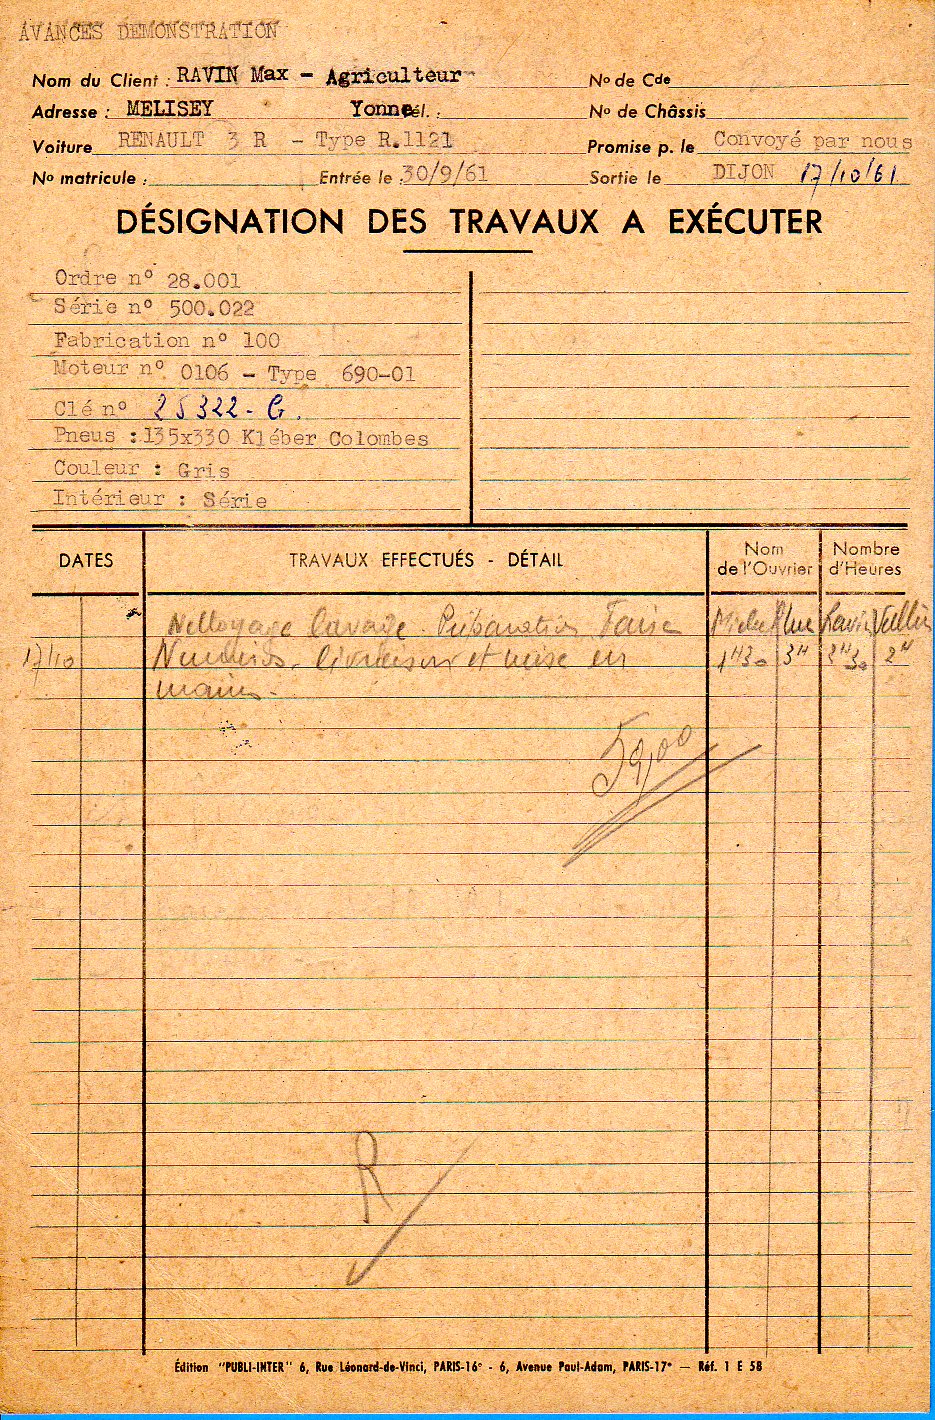 AVANCES DEMONSTRATION
Nom du Client : RAVIN Max - Agriculteur No de Cde
Adresse : MELISEY Yonne Tél. : No de Châssis
Voiture RENAULT 3 R - Type R.1121 Promise p. le Convoyé par nous
No matricule : Entrée le : 30/9/61 Sortie le DIJON 17/10/61
DÉSIGNATION DES TRAVAUX A EXÉCUTER
Ordre no 28.001
Série no 500.022
Fabrication no 100
Moteur no 0106 - Type 690-01
Clé no 25322-G.
Pneus : 135x330 Kléber Colombes
Couleur : Gris
Intérieur : Série
DATES TRAVAUX EFFECTUÉS - DÉTAIL Nom de l'Ouvrier Nombre d'Heures
Nettoyage lavage Préparation Faire
17/10 Numéros. livraison et mise en 1H30 3H 2H30 2H
mains.
59,00
R
Édition "PUBLI-INTER" 6, Rue Léonard-de-Vinci, PARIS-16e - 6, Avenue Paul-Adam, PARIS-17e — Réf. 1 E 58